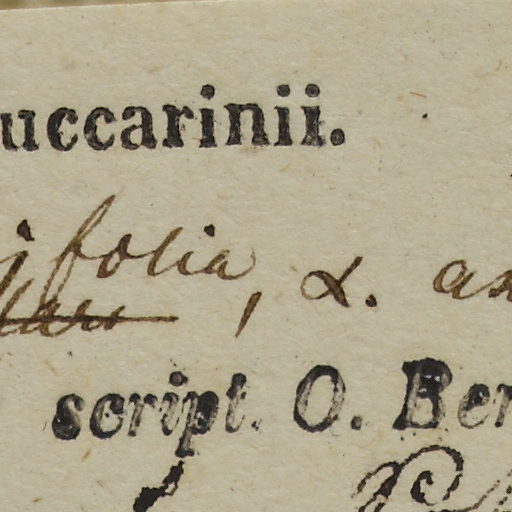 uccarinii.
ifolia, α. an
script. O. Ber